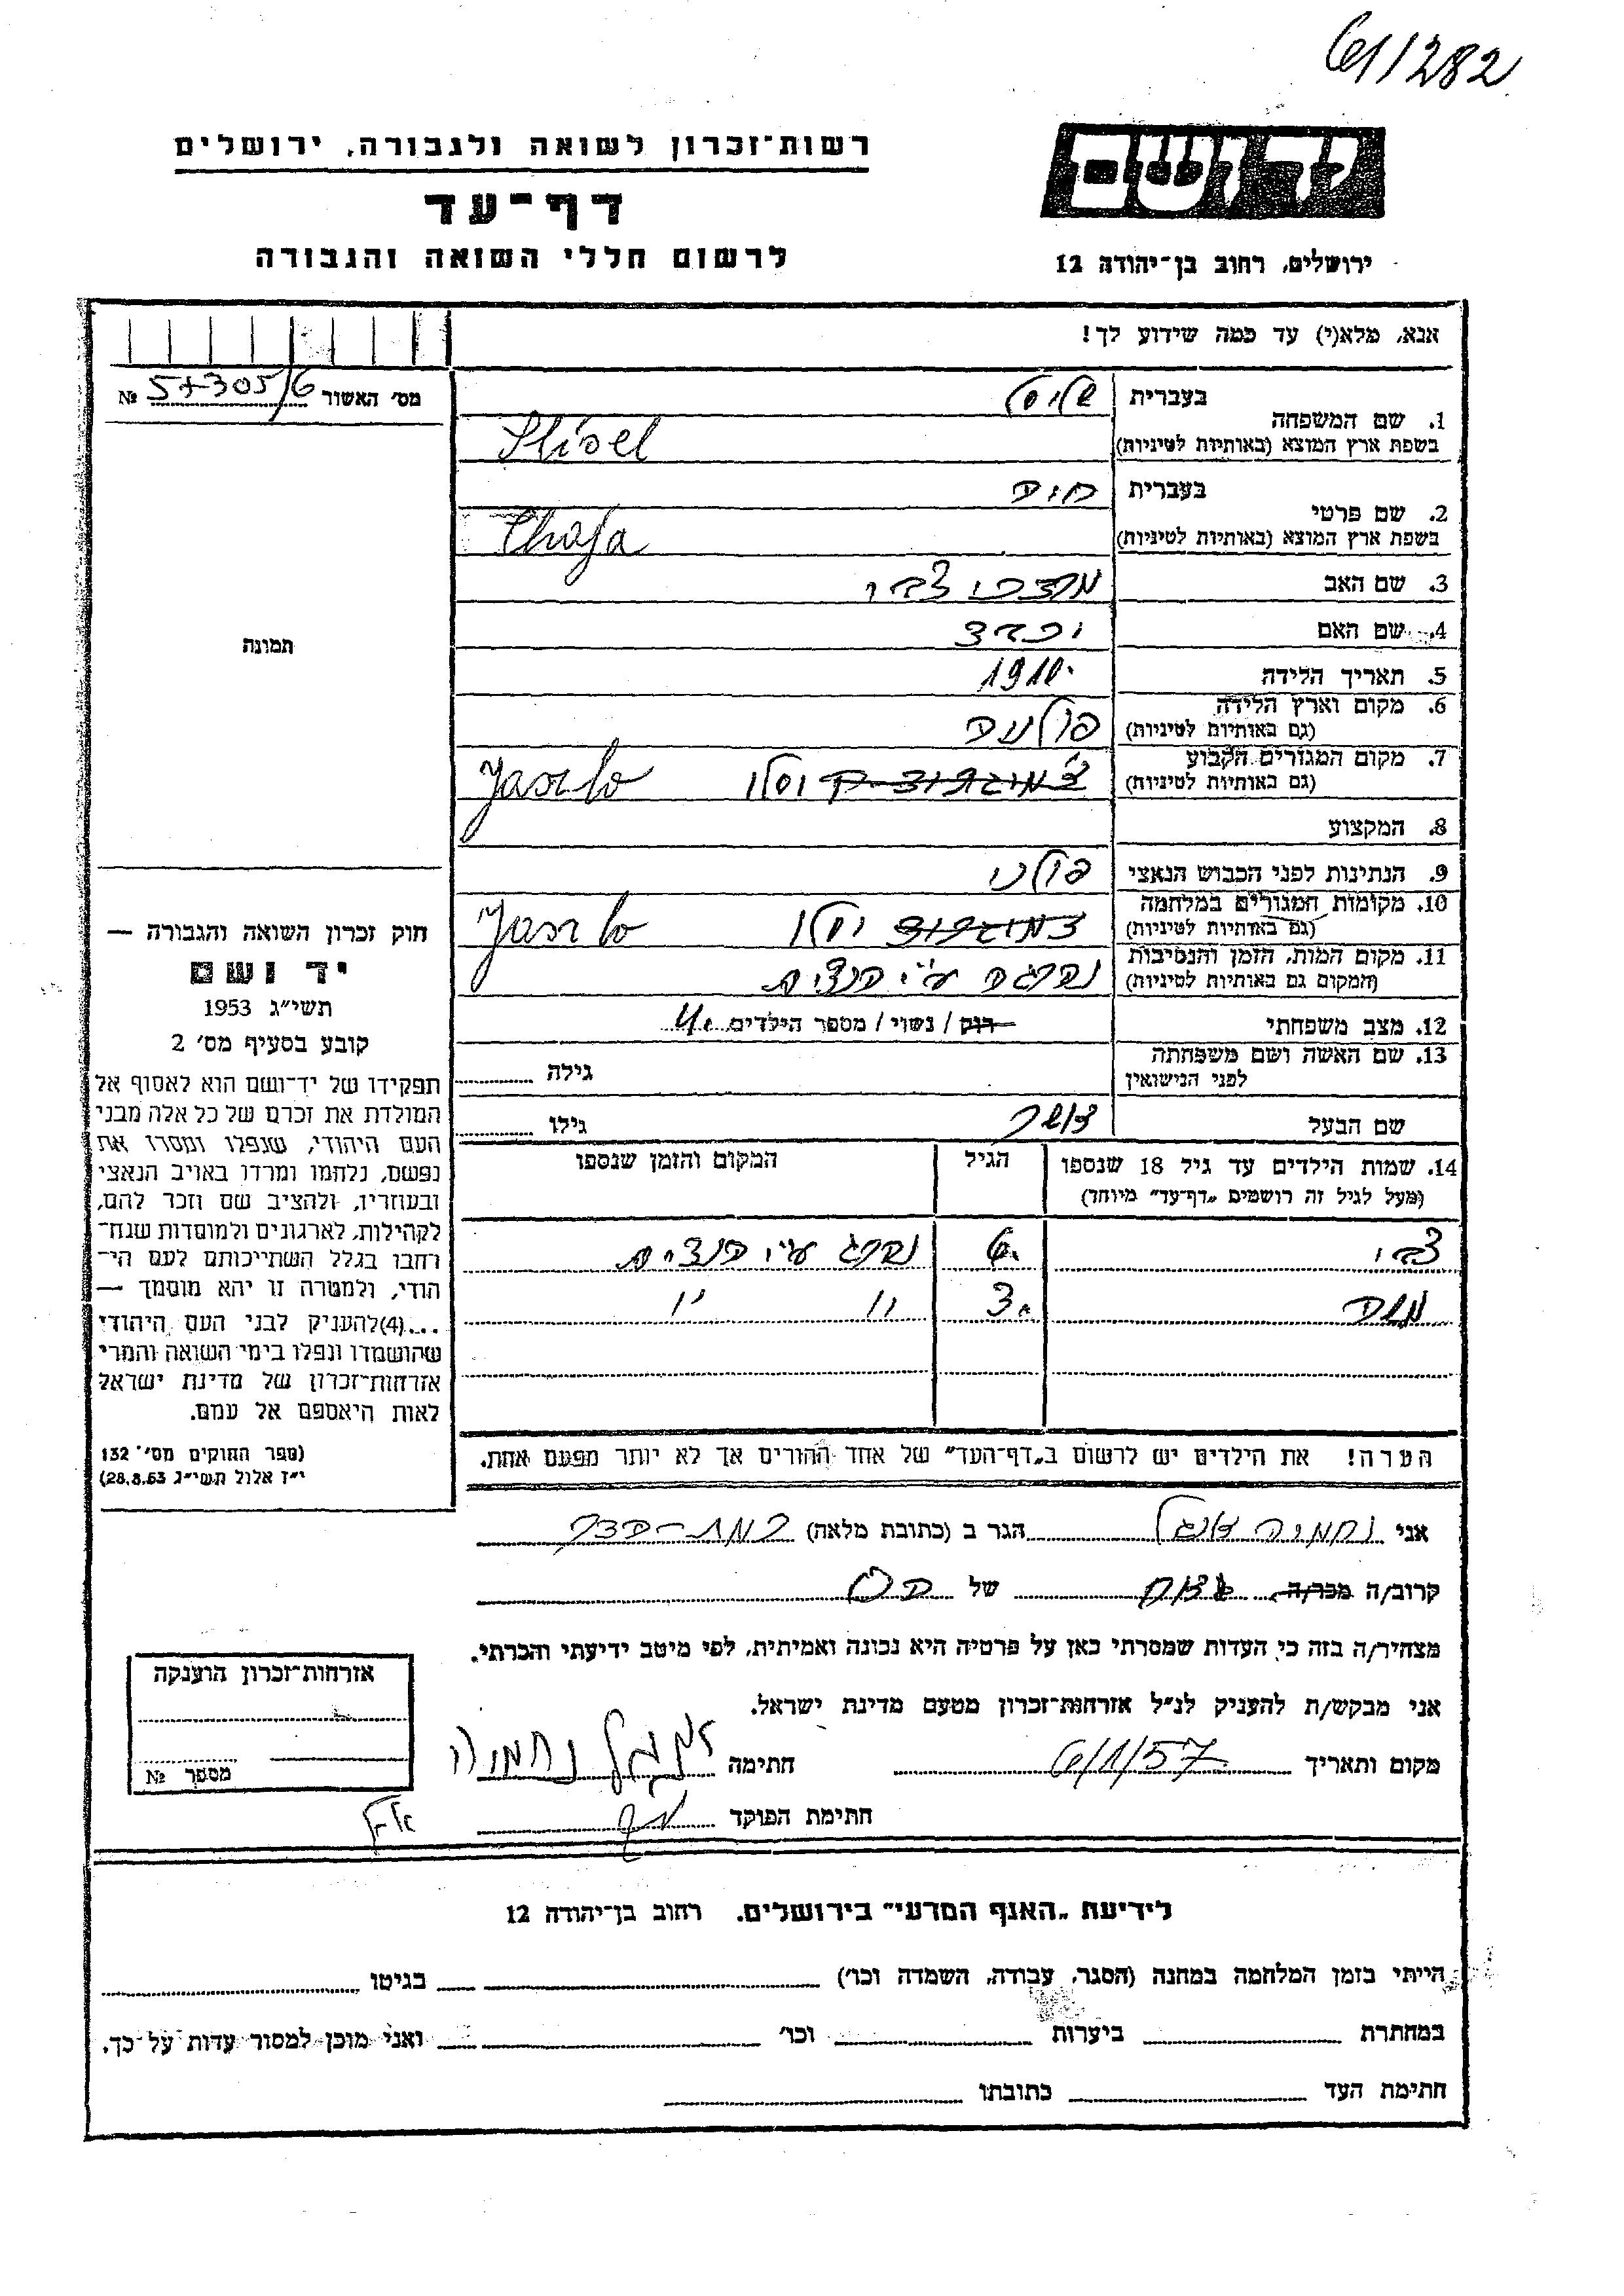 61/282
רשות־זכרון לשואה ולגבורה, ירושלים
דף־עד
לרשום חללי השואה והגבורה
ידושם
ירושלים, רחוב בן־יהודה 12
אנא, מלא(י) עד כמה שידוע לך!
מס׳ האשור № 57305/6
1. שם המשפחה
בעברית
בשפת ארץ המוצא (באותיות לטיניות)
2. שם פרטי
בעברית חיה
בשפת ארץ המוצא (באותיות לטיניות) Chaja
3. שם האב מרדכי צבי
4. שם האם
5. תאריך הלידה 1910
6. מקום וארץ הלידה (גם באותיות לטיניות) פולניה
7. מקום המגורים הקבוע (גם באותיות לטיניות) יסלו Jaslo
8. המקצוע
9. הנתינות לפני הכבוש הנאצי פולני
10. מקומות המגורים במלחמה (גם באותיות לטיניות) יסלו Jaslo
11. מקום המות, הזמן והנסיבות (המקום גם באותיות לטיניות) נהרגה ע״י הנצים
12. מצב משפחתי רוק / נשוי / מספר הילדים
13. שם האשה ושם משפחתה לפני הנישואין גילה
שם הבעל אשר גילו
14. שמות הילדים עד גיל 18 שנספו (מעל לגיל זה רושמים „דף־עד״ מיוחד)
הגיל
המקום והזמן שנספו
צבי 6 נהרג ע״י הנצים
3 ״ ״
הערה! את הילדים יש לרשום ב„דף־העד״ של אחד ההורים אך לא יותר מפעם אחת.
תמונה
חוק זכרון השואה והגבורה —
יד ושם
תשי״ג 1953
קובע בסעיף מס׳ 2
תפקידו של יד־ושם הוא לאסוף אל
המולדת את זכרם של כל אלה מבני
העם היהודי, שנפלו ומסרו את
נפשם, נלחמו ומרדו באויב הנאצי
ובעוזריו, ולהציב שם וזכר להם,
לקהילות, לארגונים ולמוסדות שנח־
רחבו בגלל השתייכותם לעם הי־
הודי, ולמטרה זו יהא מוסמך —
...(4)להעניק לבני העם היהודי
שהושמדו ונפלו בימי השואה והמרי
אזרחות־זכרון של מדינת ישראל
לאות היאספם אל עמם.
(ספר החוקים מס׳ 132
י״ז אלול תשי״ג 28.8.53)
אני נחמיה הגר ב (כתובת מלאה)
קרוב/ה מכר/ה של
מצהיר/ה בזה כי העדות שמסרתי כאן על פרטיה היא נכונה ואמיתית, לפי מיטב ידיעתי והכרתי.
אני מבקש/ת להעניק לנ״ל אזרחות־זכרון מטעם מדינת ישראל.
מקום ותאריך 6/1/57 חתימה נחמיה
חתימת הפוקד
אזרחות־זכרון הוענקה
מספר №
לידיעת „האגף המדעי״ בירושלים. רחוב בן־יהודה 12
הייתי בזמן המלחמה במחנה (הסגר, עבודה, השמדה וכו׳) בגיטו
במחתרת ביערות וכו׳ ואני מוכן למסור עדות על כך.
חתימת העד כתובתו